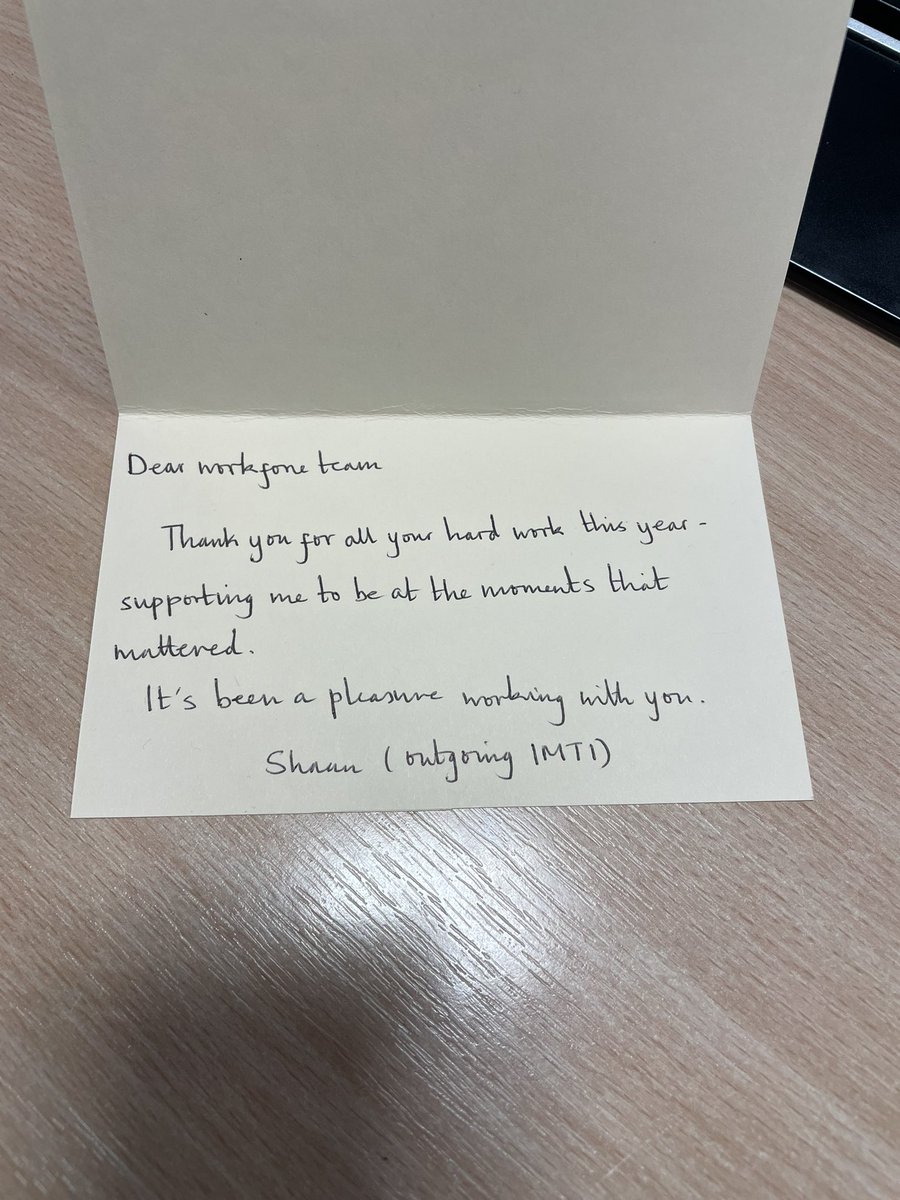 Dear workforce team
Thank you for all your hard work this year -
supporting me to be at the moments that
mattered.
It's been a pleasure working with you.
Shaun (outgoing IMT1)